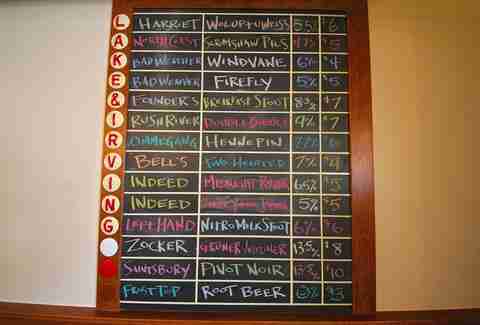 LAKE & IRVING
HARRIET WOLUPTUWEISS 5.5 $6
NORTH COAST SCRIMSHAW PILS $5
BAD WEATHER WINDVANE 6% $4
BAD WEATHER FIREFLY 5% $5
FOUNDER'S BREAKFAST STOUT $7
RUSH RIVER DOUBLE BUBBLE 9% $7
OMMEGANG HENNEPIN $6
BELL'S TWO HEARTED 7% $4
INDEED MIDNIGHT RYDER 6.5% $5
INDEED 5% $5
LEFT HAND NITRO MILK STOUT 6% $6
ZOCKER GRUNER VELTLINER 13.5% $8
SAINTSBURY PINOT NOIR 13.5% $10
FROST TOP ROOT BEER $3